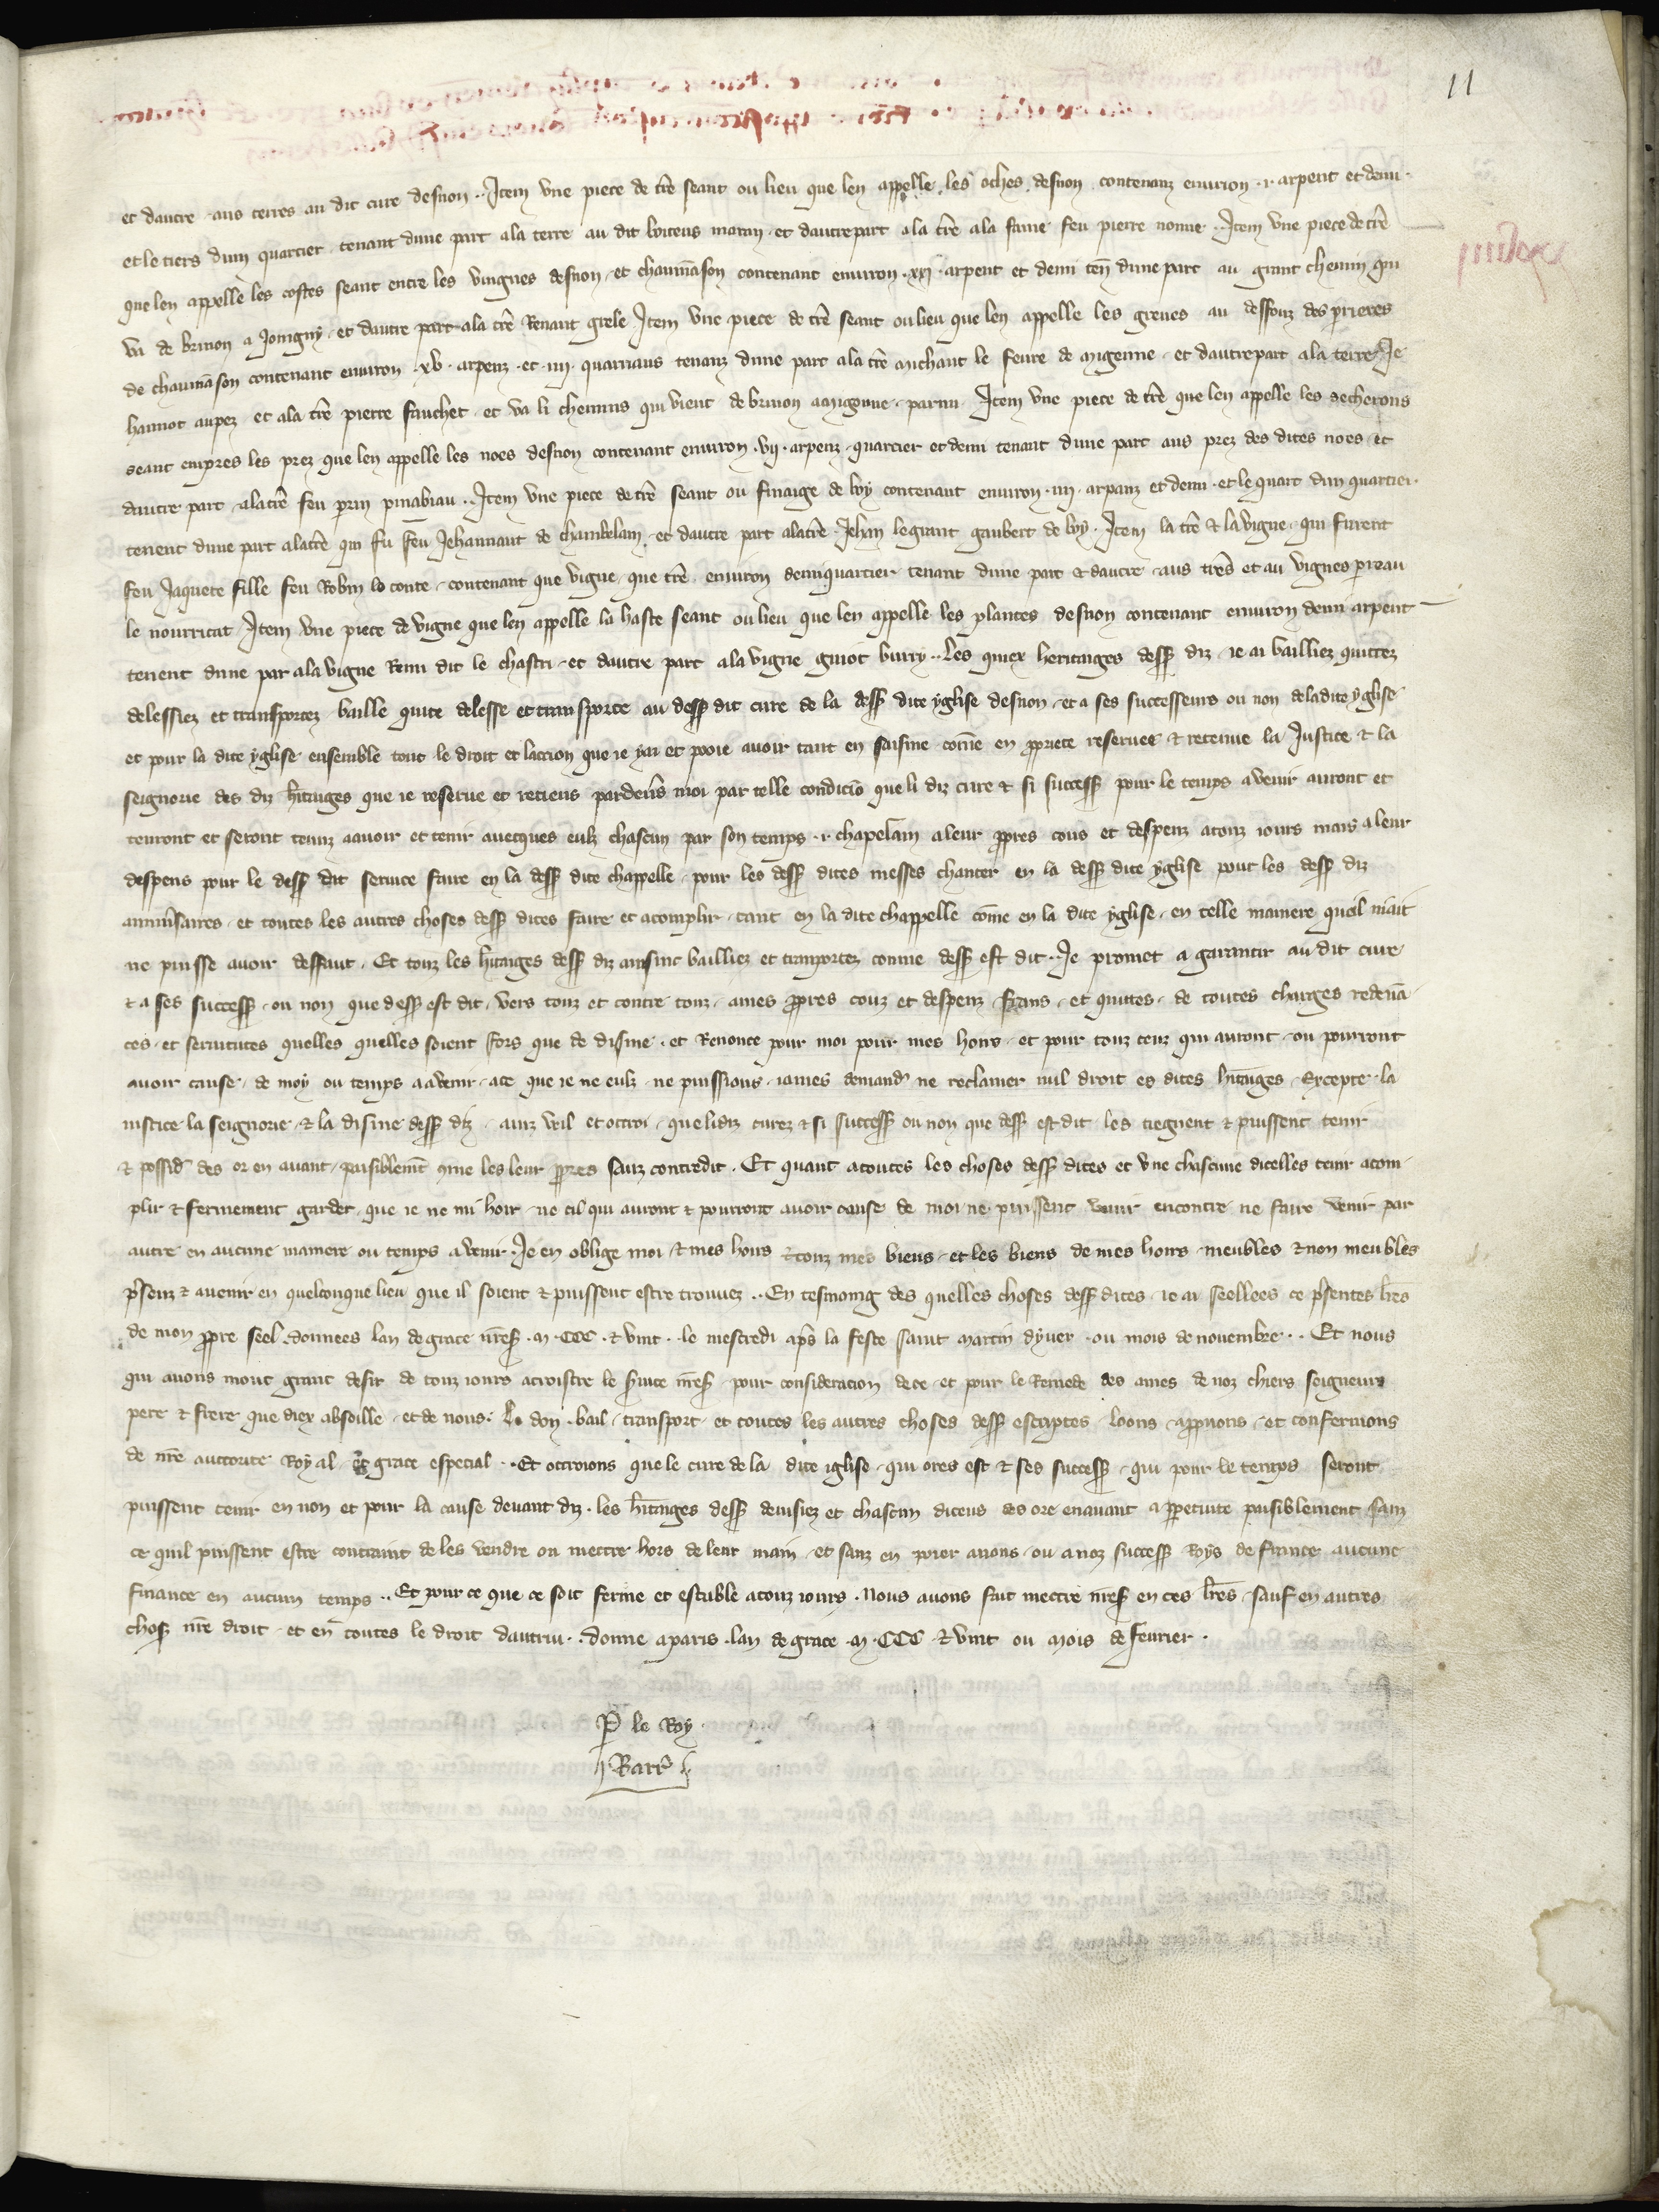 11
et dautre aus terres au dit cure desnon .. Item vne piece de tr̄e seant ou lieu que len appelle les oches desnon contenanz enuiron .i. arpent et demi .
et le tiers dun quartier tenant dune part a la terre au dit boiteus et dautrepart a la tr̄e a la fame feu pierre nonne .. Item vne piece de tr̄e
que len appelle les costes seant entre les vingnes desnon et chaumason contenant enuiron .xxi. arpent et demi ten̄ dune part au grant chemin qui
va de brinon a Joingny et dautre part a la tr̄e Renaut grele Item vne piece de tr̄e seant ou lieu que len appelle les greues au dessouz des prieres
de chaumason contenant enuiron .xv. arpenz et .iiij. quarriaus tenanz dune part a la tr̄e michaut le feure de migenne et dautrepart a la terre Je
hannot aupez et a la tr̄e pierre fauchet et va li chemins qui vient de brinon a migenne parmi Item vne piece de tr̄e que len appelle les secherons
seant empres les prez que len appelle les noes desnon contenant enuiron .vij. arpenz quartier et demi tenant dune part aus prez des dites noes et
dautre part a la tr̄e feu perin pinabiau . Item vne piece de tr̄e seant ou finaige de loy contenant enuiron .iiij. arpanz et demi et le quart dun quartier
tenent dune part a la tr̄e qui fu feu Jehannaut de chambelain et dautre part a la tr̄e Jehan legrant gaubert de loy . Item la tr̄e & la vigne qui furent
feu Jaquete fille feu Robin lo conte contenant que vigne que tr̄e enuiron demiquartier tenant dune part & dautre aus tr̄es et au vignes perreau
le nourricat Item vne piece de vigne que len appelle la haste seant ou lieu que len appelle les plantes desnon contenant enuiron demi arpent
tenent dune par a la vigne Remi dit le chastri et dautre part a la vigne guiot burry .. Les quiex heritaiges dess̄ diz ie ai bailliez quittez
delessiez et transportez baille quite delesse et transporte au dess̄ dit cure de la dess̄ dite yglise desnon et a ses successeurs ou non de la dite yglise
et pour la dite yglise ensemble tout le droit et laction que ie yai et pooie auoir tant en saisine com̄e en p̱priete reseruee & retenue la Justice & la
seignorie des diz h̄itaiges que ie reserue et retiens pardeu̾s moi par telle condicio̅ que li diz cure & si success̄ pour le temps auenir auront et
tenront et seront tenuz a auoir et tenir auecques eulz chascun par son temps .i. chapelain a leur p̱pres cous et despenz a touz iours mais a leur
despens pour le dess̄ dit seruice faire en la dess̄ dite chappelle pour les dess̄ dites messes chanter en la dess̄ dite yglise pour les dess̄ diz
anniu̾saires et toutes les autres choses dess̄ dites faire et acomplir tant en la dite chappelle com̄e en la dite yglise en telle maniere quil niait
ne puisse auoir deffaut . Et touz les h̄itaiges dess̄ diz ainsinc bailliez et transportez comme dess̄ est dit .. Je promet a garantir au dit cure
& a ses success̄ ou non que dess̄ est dit vers touz et contre touz a mes p̱pres couz et despenz frans et quittes de toutes charges redeua̅
ces et seruitutes quelles quelles soient fors que de disme . et Renonce pour moi pour mes hoirs et pour touz ceuz qui auront ou pourront
auoir cause de moy ou temps a auenir a ce que ie ne eulz ne puissions iames demand̾ ne reclamer nul droit es dites h̄itaiges Excepte la
iustice la seignorie & la disme dess̄ diz ainz vuil et ottroi que li diz curez & si success̄ ou non que dess̄ est dit les tiegnent & puissent tenir
& possid̾ des or en auant paisiblem̄t 9me les leur p̱pres sanz contredit . Et quant a toutes les choses dess̄ dites et vne chascune dicelles tenir acom
plir & fermement garder que ie ne mi hoir ne cil qui auront & pourront auoir cause de moi ne puissent venir encontre ne faire venir par
autre en aucune maniere ou temps auenir . Je en oblige moi & mes hoirs & touz mes biens et les biens de mes hoirs meubles & non meubles
p̄senz & auenir en quelconque lieu que il soient & puissent estre trouuez .. En tesmoing des quelles choses dess̄ dites ie ai seellees ce p̄sentes lr̄es
de mon p̱pre seel . donnees lan de grace nr̄es̄ .M.CCC. & vint . le mescredi ap̄s la feste saint martin dyuer ou mois de nouembre .. Et nous
qui auons mout grant desir de touz iours acroistre le s̾uice nr̄es̄ pour consideracion de ce et pour le Remede des ames de noz chiers seigneurs
pere & frere que diex absoille et de nous . Le don . bail transport et toutes les autres choses dess̄ escriptes loons app̱uons et confermons
de nr̄e auctorite Royal & grace especial .. Et ottroions que le cure de la dite iglise qui ores est & ses success̄ qui pour le temps seront
puissent tenir en non et pour la cause deuant diz . les h̄itaiges dess̄ deuisiez et chascun diceus des ore enauant a p̱petuite paisiblement sanz
ce quil puissent estre contraint de les vendre ou mettre hors de leur main et sanz en poier anous ou a noz success̄ Roys de france aucune
finance en aucun temps .. Et pour ce que ce soit ferme et estable a touz iours . Nous auons fait mettre nr̄es̄ en ces lr̄es sauf en autres
chos̄ nr̄e droit et en toutes le droit dautrui .. donne a paris . lan de grace .M.CCC. & vint ou mois de feurier .
P̱ le Roy .
Barr̾